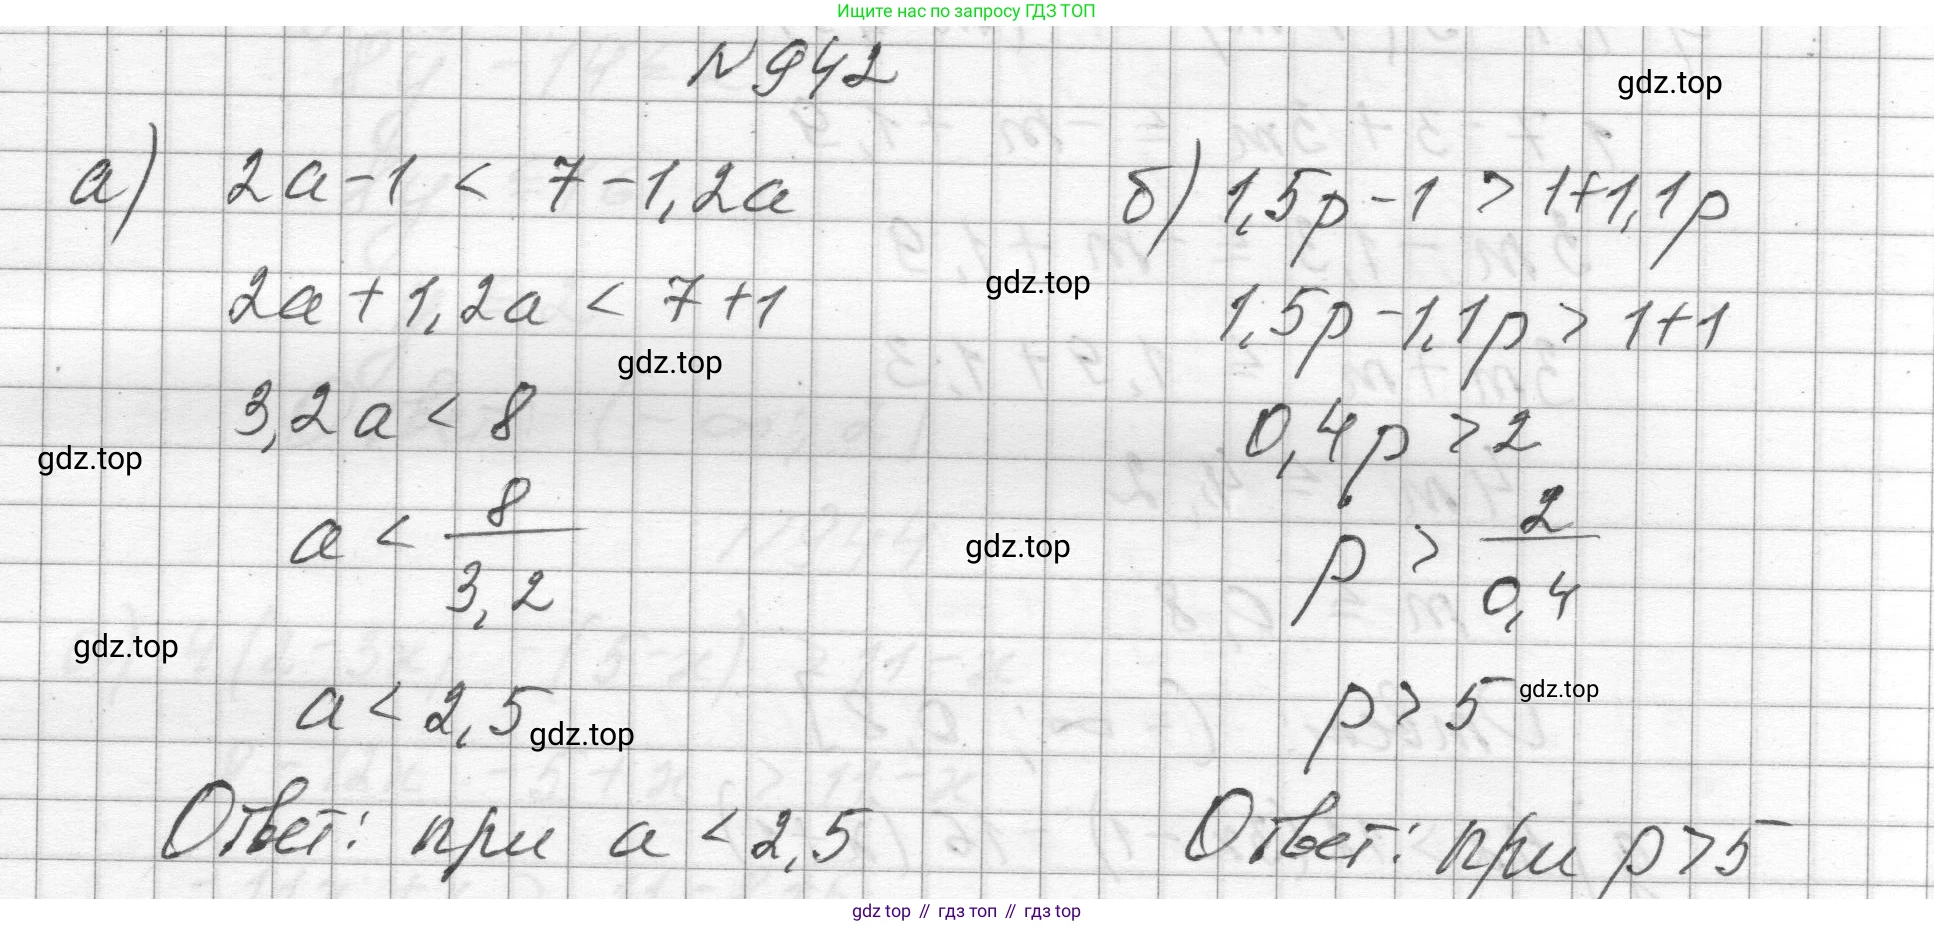 Ищите нас по запросу ГДЗ ТОП
N942
gdz.top
а) 2a-1 < 7-1,2a
2a+1,2a < 7+1
gdz.top
3,2a < 8
gdz.top
a < 8/3,2
gdz.top
a < 2,5
gdz.top
Ответ: при a < 2,5
б) 1,5p-1 > 1+1,1p
gdz.top
1,5p-1,1p > 1+1
0,4p > 2
gdz.top
p > 2/0,4
p > 5
gdz.top
Ответ: при p>5
gdz top // гдз топ // гдз top